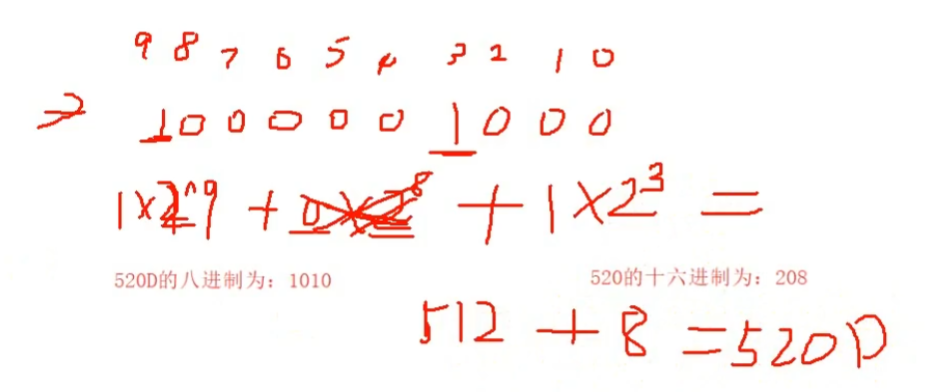 9 8 7 6 5 4 3 2 1 0
→ 1 0 0 0 0 0 1 0 0 0
1×2^9 + 0×2⁸ + 1×2³ =
520D的八进制为：1010 520的十六进制为：208
512 + 8 = 520D